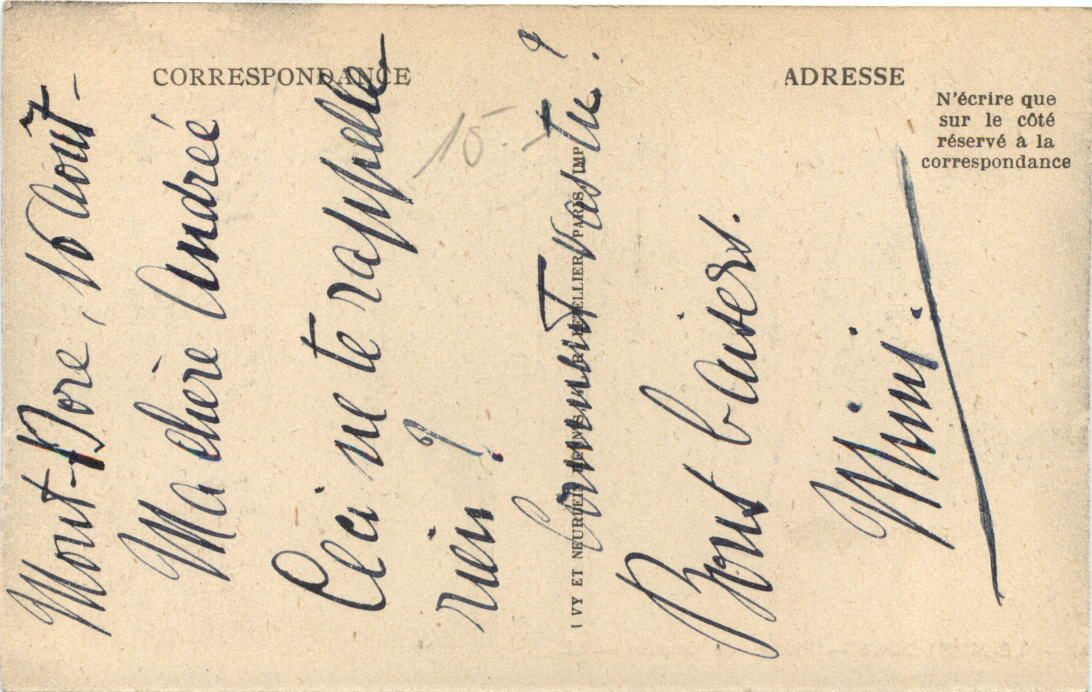 CORRESPONDANCE
ADRESSE
N'écrire que
sur le côté
réservé à la
correspondance
Mont-Dore, 16 Août -
Ma chère Andrée
Ceci ne te rappelle
rien ?
Comment vas-tu ?
Bons baisers.
Mimi.
15.-
LEVY ET NEURDEIN REUNIS LETELLIER, PARIS IMP